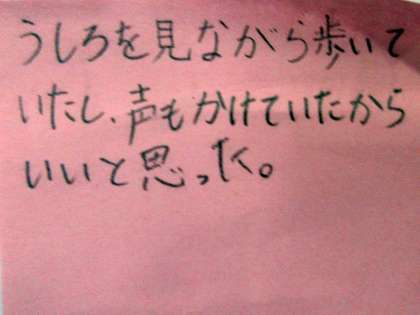 うしろを見ながら歩いて
いたし、声もかけていたから
いいと思った。